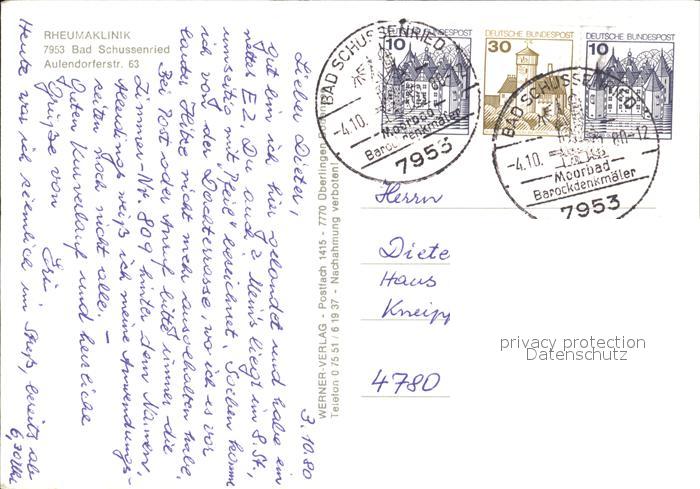 RHEUMAKLINIK
7953 Bad Schussenried
Aulendorferstr. 63
3.10.80
Lieber Dieter,
Gut bin ich hier gelandet und habe ein
nettes EZ. Du auch? Meins liegt im 8. St.,
umseitig mit "Pfeil" bezeichnet. Soeben komme
ich von der Dachterrasse, wo ich es vor
lauter Hitze nicht mehr ausgehalten habe.
Bei Post oder Anruf bitte immer die
Zimmer-Nr. 809 hinter dem Namen,
Allerdings weiß ich meine Anwendungs-
zeiten noch nicht alle. –
Guten Kurverlauf und herzliche
Grüße von
Heute war ich ziemlich im Streß, bereits ab
6,30 Uhr
WERNER-VERLAG - Postfach 1415 - 7770 Überlingen-Bodensee
Telefon 0 75 51 / 6 19 37 - Nachahmung verboten
10
DEUTSCHE BUNDESPOST
30
DEUTSCHE BUNDESPOST
10
DEUTSCHE BUNDESPOST
BAD SCHUSSENRIED
-4.10.
80-12
Moorbad
Barockdenkmäler
7953
BAD SCHUSSENRIED
-4.10.
80-12
Moorbad
Barockdenkmäler
7953
Herrn
Diete
Haus
Kneipp
4780
privacy protection
Datenschutz